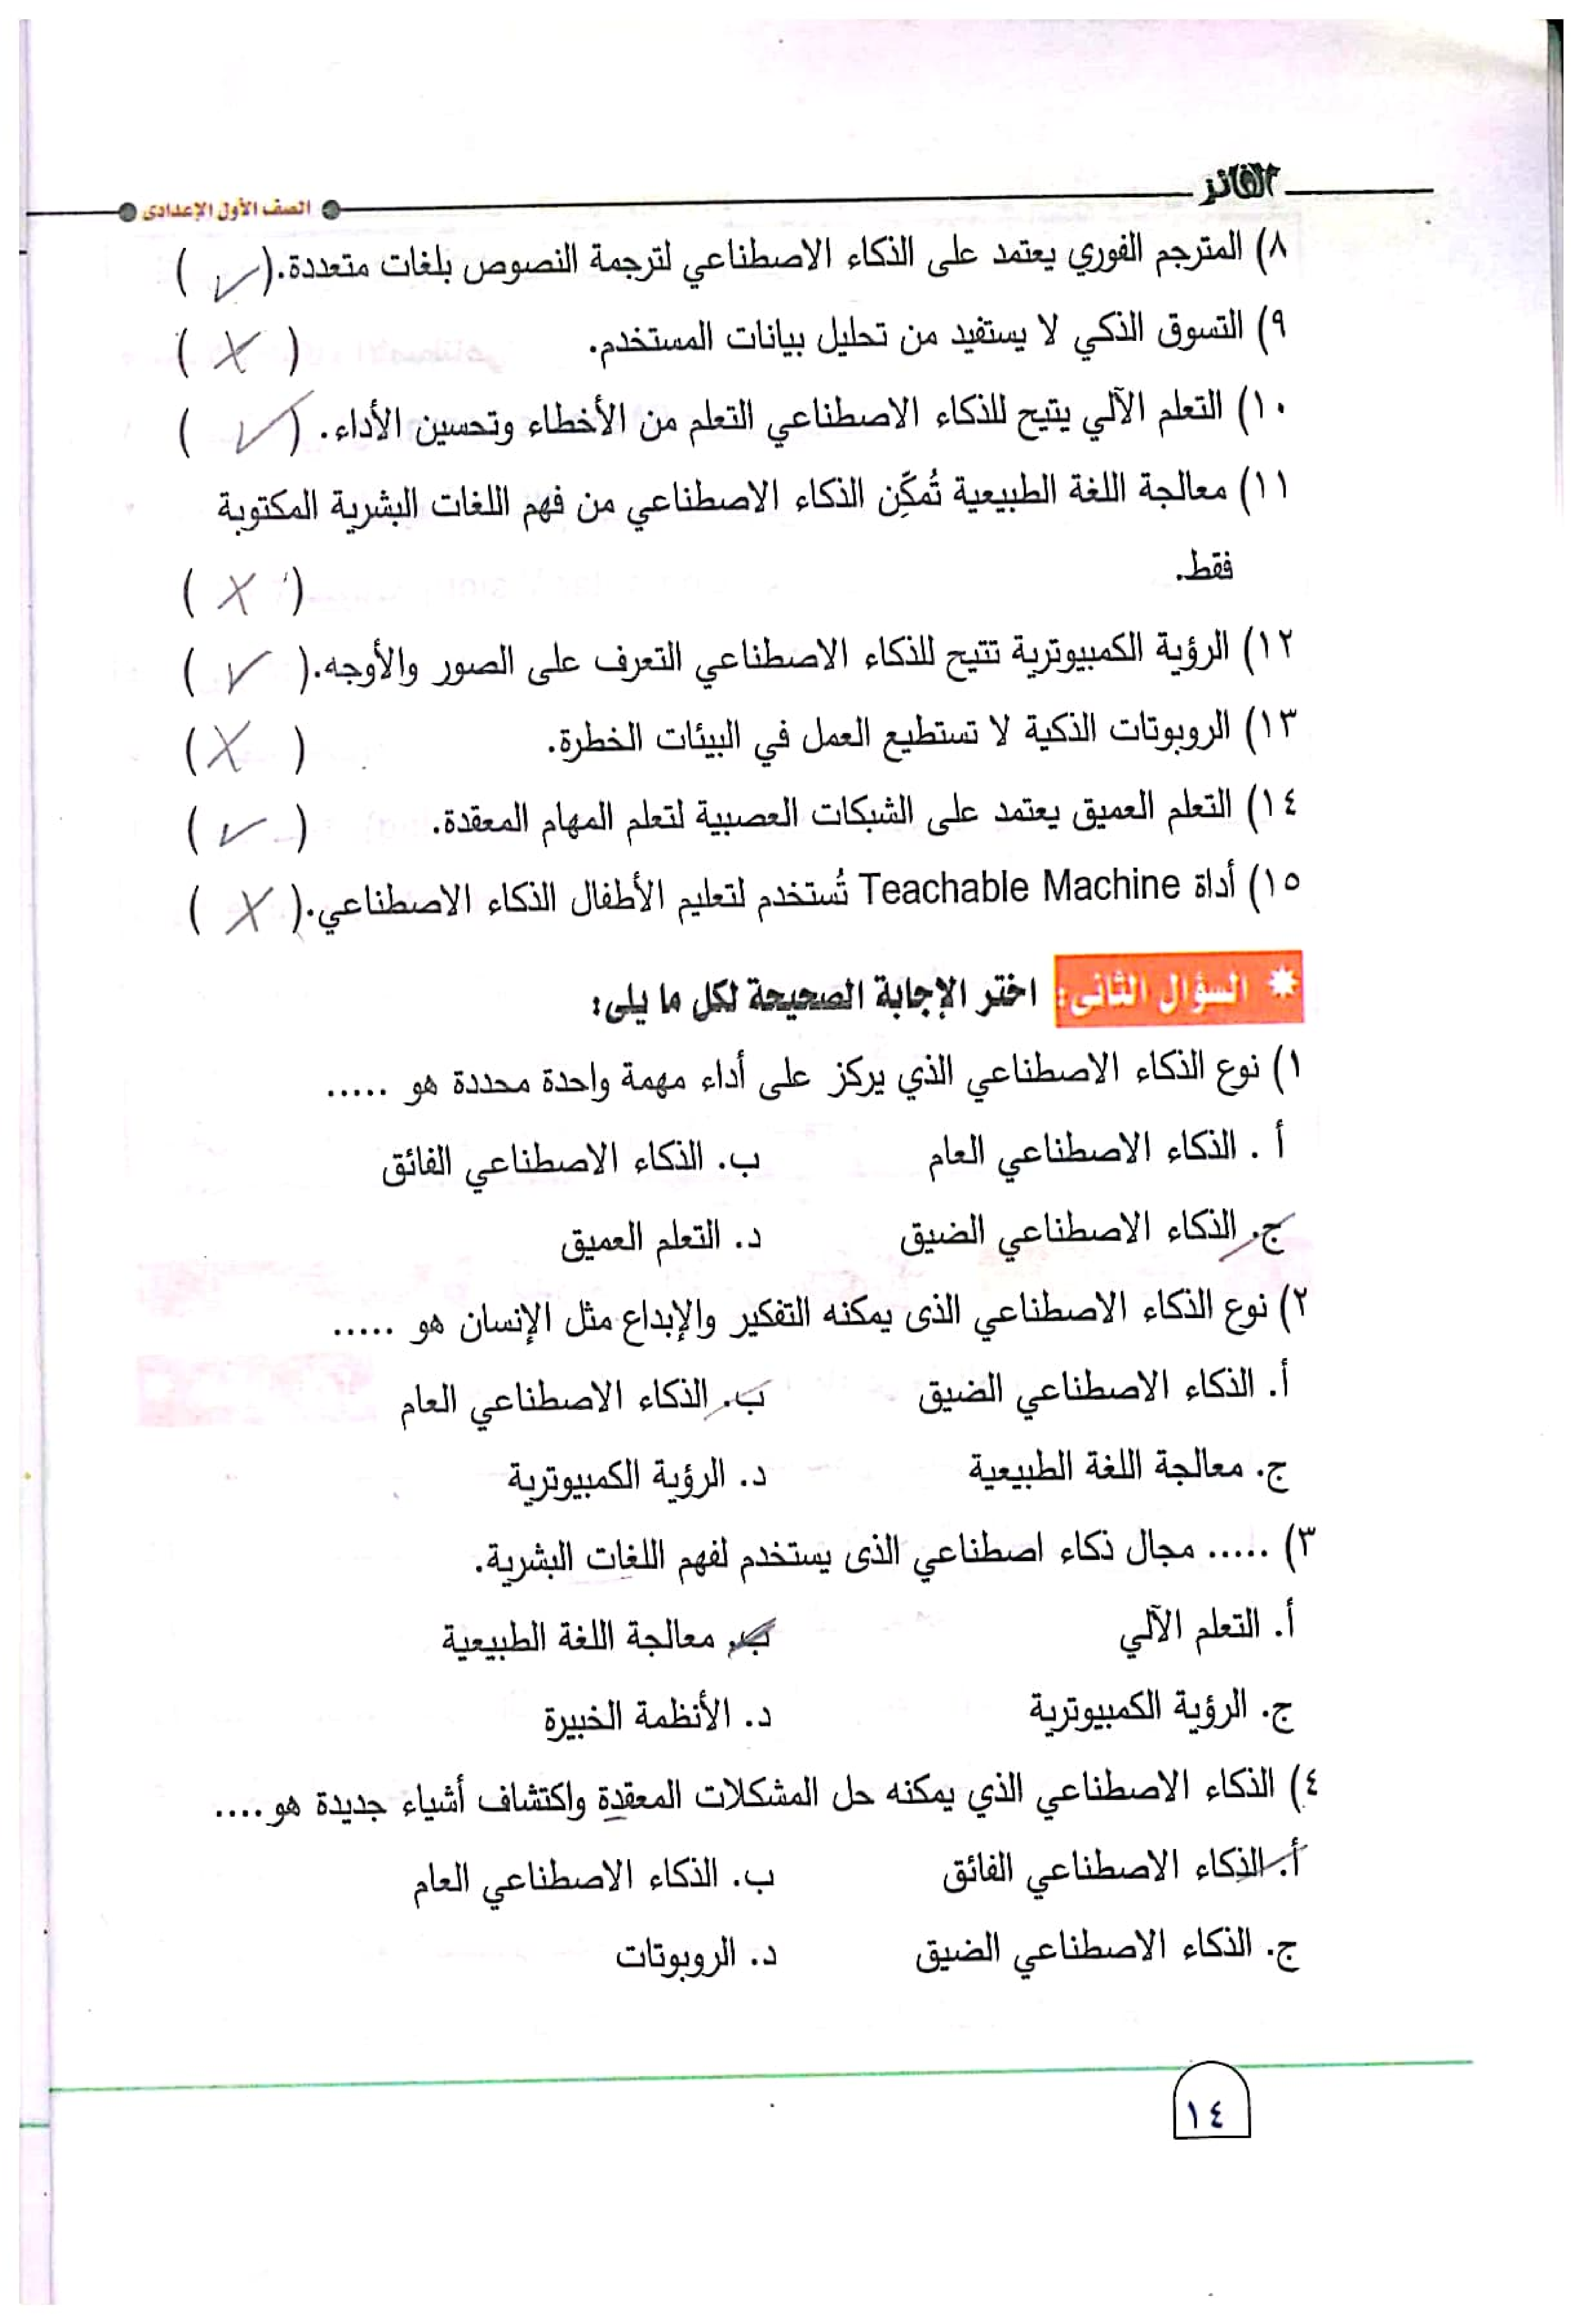 الفائز
الصف الأول الإعدادى
٨) المترجم الفوري يعتمد على الذكاء الاصطناعي لترجمة النصوص بلغات متعددة. ( ✓ )
٩) التسوق الذكي لا يستفيد من تحليل بيانات المستخدم. ( X )
١٠) التعلم الآلي يتيح للذكاء الاصطناعي التعلم من الأخطاء وتحسين الأداء. ( ✓ )
١١) معالجة اللغة الطبيعية تُمكِّن الذكاء الاصطناعي من فهم اللغات البشرية المكتوبة
فقط. ( X )
١٢) الرؤية الكمبيوترية تتيح للذكاء الاصطناعي التعرف على الصور والأوجه. ( ✓ )
١٣) الروبوتات الذكية لا تستطيع العمل في البيئات الخطرة. ( X )
١٤) التعلم العميق يعتمد على الشبكات العصبية لتعلم المهام المعقدة. ( ✓ )
١٥) أداة Teachable Machine تُستخدم لتعليم الأطفال الذكاء الاصطناعي. ( X )
السؤال الثانى: اختر الإجابة الصحيحة لكل ما يلى:
١) نوع الذكاء الاصطناعي الذي يركز على أداء مهمة واحدة محددة هو .....
أ . الذكاء الاصطناعي العام ب. الذكاء الاصطناعي الفائق
ج. الذكاء الاصطناعي الضيق د. التعلم العميق
٢) نوع الذكاء الاصطناعي الذى يمكنه التفكير والإبداع مثل الإنسان هو .....
أ. الذكاء الاصطناعي الضيق ب. الذكاء الاصطناعي العام
ج. معالجة اللغة الطبيعية د. الرؤية الكمبيوترية
٣) ..... مجال ذكاء اصطناعي الذى يستخدم لفهم اللغات البشرية.
أ. التعلم الآلي ب. معالجة اللغة الطبيعية
ج. الرؤية الكمبيوترية د. الأنظمة الخبيرة
٤) الذكاء الاصطناعي الذي يمكنه حل المشكلات المعقدة واكتشاف أشياء جديدة هو ....
أ. الذكاء الاصطناعي الفائق ب. الذكاء الاصطناعي العام
ج. الذكاء الاصطناعي الضيق د. الروبوتات
١٤